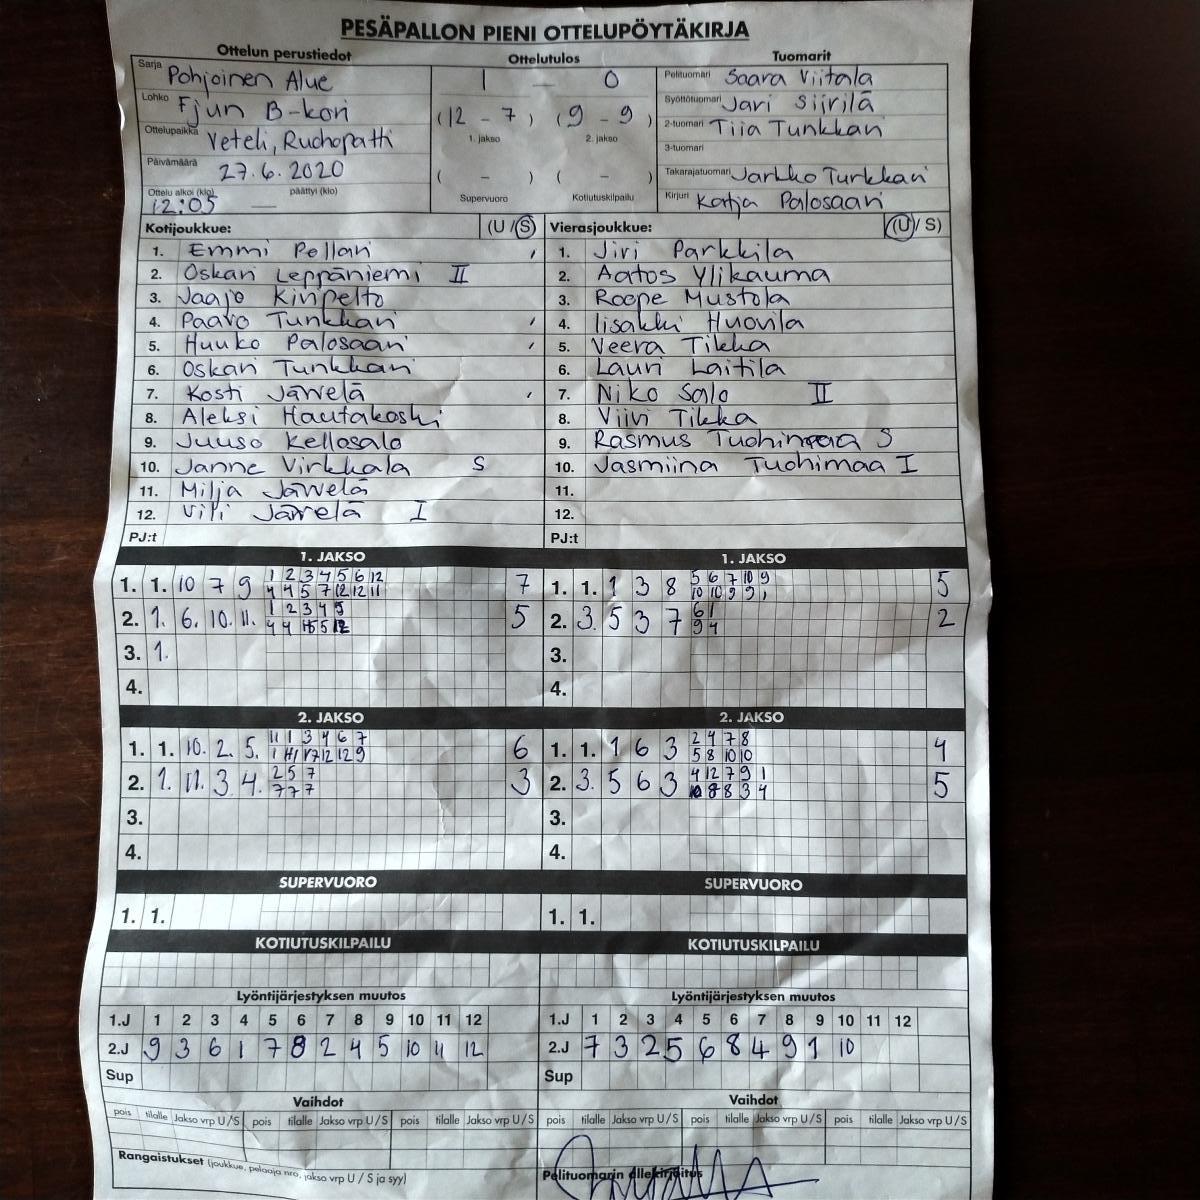 PESÄPALLON PIENI OTTELUPÖYTÄKIRJA
Ottelun perustiedot Ottelutulos Tuomarit
Sarja Pohjoinen Alue 1 — 0 Pelituomari Saara Viitala
Lohko Fjun B-kori (12 - 7) (9 - 9) Syöttötuomari Jari Siirilä
1. jakso 2. jakso
Ottelupaikka Veteli, 2-tuomari Tiia Tunkkari
3-tuomari
Päivämäärä 27.6.2020 ( - ) ( - ) Takarajatuomari Jarkko Turkkari
Ottelu alkoi (klo) 12:05 päättyi (klo) — Supervuoro Kotiutuskilpailu Kirjuri Katja Palosaari
Kotijoukkue: (U/S) Vierasjoukkue: (U/S)
1. Emmi Pollari 1. Jiri Parkkila
2. Oskari Leppäniemi II 2. Aatos Ylikauma
3. Jaajo Kiripelto 3. Roope Mustola
4. Paavo Tunkkari 4. Iisakki Huovila
5. Huuko Palosaari 5. Veera Tikka
6. Oskari Tunkkari 6. Lauri Laitila
7. Kosti Järvelä 7. Niko Salo II
8. Aleksi Hautakoski 8. Viivi Tikka
9. Juuso Kellosalo 9. Rasmus Tuohimaa S
10. Janne Virkkala S 10. Jasmiina Tuohimaa I
11. Milja Järvelä 11.
12. Vili Järvelä I 12.
PJ:t PJ:t
1. JAKSO 1. JAKSO
1. 1. 10 7 9 1 2 3 4 5 6 12 7 1. 1. 1 3 8 5 6 7 10 9 5
4 4 5 7 12 12 11 10 10 9 9 1
2. 1. 6. 10. 11. 1 2 3 4 5 5 2. 3. 5 3 7 6 1 2
4 4 5 12 9 4
3. 1. 3.
4. 4.
2. JAKSO 2. JAKSO
1. 1. 10. 2. 5. 11 1 3 4 6 7 6 1. 1. 1 6 3 2 4 7 8 4
12 12 9 5 8 10 10
2. 1. 11. 3 4. 2 5 7 3 2. 3. 5 6 3 4 12 7 9 1 5
7 7 7 8 8 3 4
3. 3.
4. 4.
SUPERVUORO SUPERVUORO
1. 1. 1. 1.
KOTIUTUSKILPAILU KOTIUTUSKILPAILU
Lyöntijärjestyksen muutos Lyöntijärjestyksen muutos
1.J 1 2 3 4 5 6 7 8 9 10 11 12 1.J 1 2 3 4 5 6 7 8 9 10 11 12
2.J 9 3 6 1 7 8 2 4 5 10 11 12 2.J 7 3 2 5 6 8 4 9 1 10
Sup Sup
Vaihdot Vaihdot
pois tilalle Jakso vrp U/S pois tilalle Jakso vrp U/S pois tilalle Jakso vrp U/S pois tilalle Jakso vrp U/S pois tilalle Jakso vrp U/S pois tilalle Jakso vrp U/S
Rangaistukset (joukkue, pelaaja nro, jakso vrp U / S ja syy) Pelituomarin allekirjoitus